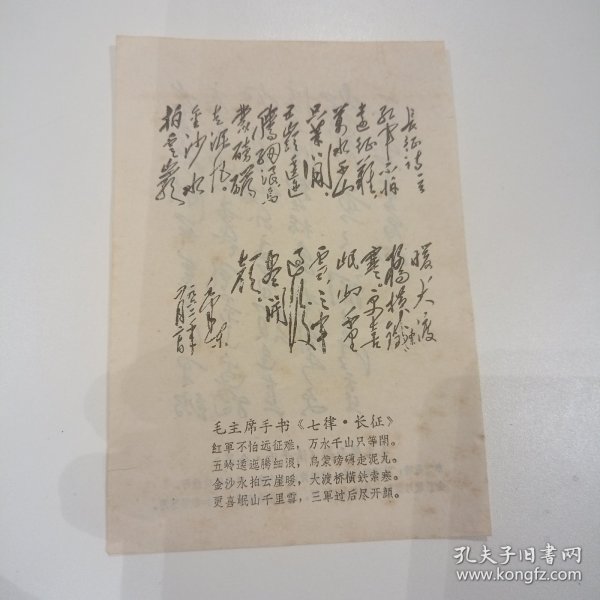 長征诗一首
红军不怕
遠征難
萬水千山
只等闲
五嶺逶迤
腾细浪烏
蒙磅礴
走泥丸
金沙水
拍雲巖
暖大渡
橋横铁索
寒更喜
岷山千里
雪三军
過後
尽開
顔
毛泽东
毛主席手书《七律·长征》
紅軍不怕远征难，万水千山只等閑。
五岭逶迤腾細浪，烏蒙磅礴走泥丸。
金沙水拍云崖暖，大渡桥橫鉄索寒。
更喜岷山千里雪，三軍过后尽开顏。
孔夫子旧书网
www.kongfz.com